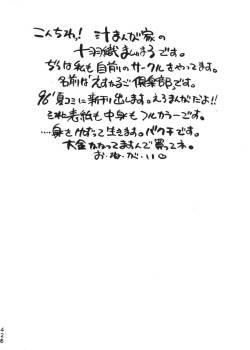 こんちわ！汁まんが家の
十羽織ましゅまろです。
じつは私も自前のサークルをやってます。
名前は「えすかるご倶楽部」です。
96'夏コミに新刊出します。えろまんがだよ!!
しかも表紙も中身もフルカラーです。
....身をけずって生きます。バクチです。
大金かかってますんで買ってネ。
お・ね・が・い♡
428